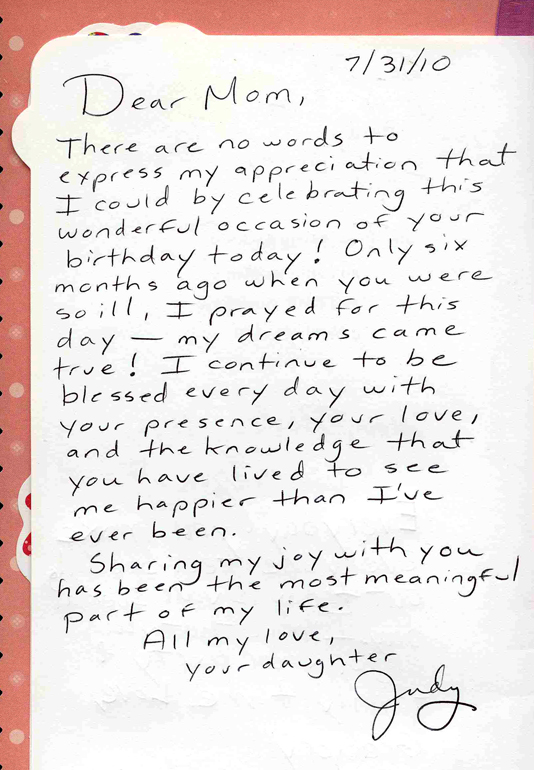 7/31/10
Dear Mom,
There are no words to
express my appreciation that
I could by celebrating this
wonderful occasion of your
birthday today! Only six
months ago when you were
so ill, I prayed for this
day — my dreams came
true! I continue to be
blessed every day with
your presence, your love,
and the knowledge that
you have lived to see
me happier than I've
ever been.
Sharing my joy with you
has been the most meaningful
part of my life.
All my love,
your daughter
Judy